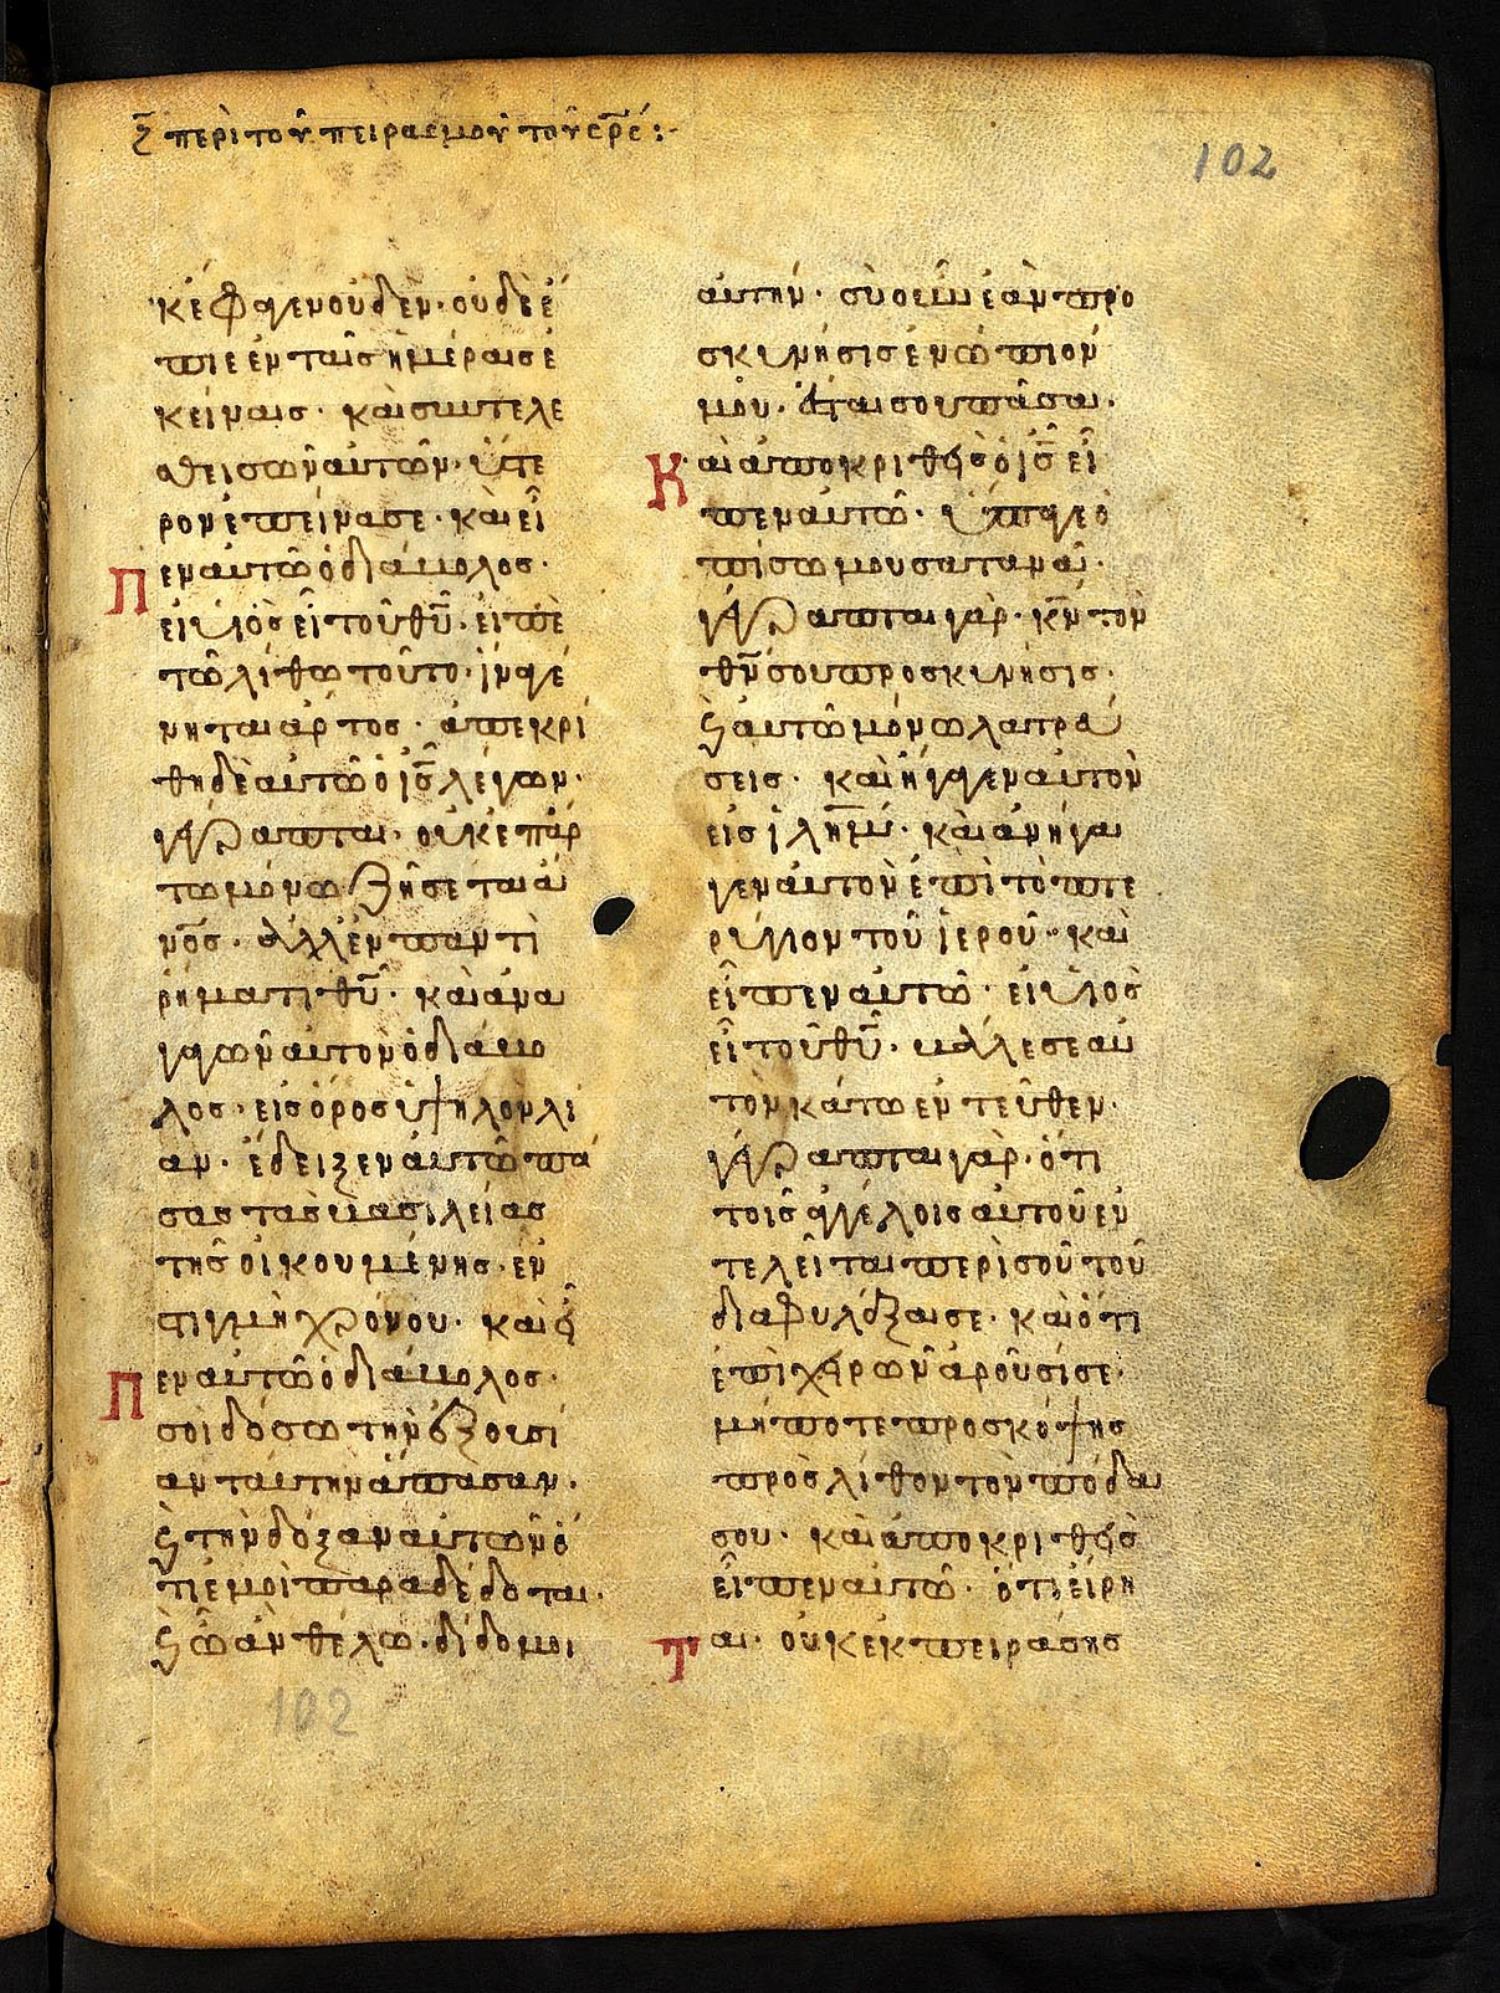 ζ̄ περὶ τοῦ πειρασμοῦ τοῦ σ̅ρ̅σ :-
102
κἔφαγεν οὐδὲν· οὐδὲ ἔ
πιε ἐν ταῖς ἡμέραις ἐ
κείναις· καὶ συντελε
σθεισῶν αὐτῶν· ὕστε
ρον ἐπείνασε· καὶ εἶ
Πεν αὐτῶ ὁ διάβολος·
εἰ υἱὸς εἶ τοῦ θ̅υ̅· εἰπὲ
τῶ λίθω τοῦτο· ἵνα γέ
νηται ἄρτος· ἀπεκρί
θη δὲ αὐτῶ ὁ ι̅ς̅ λέγων·
γέγραπται· οὐκ ἐπ' ἄρ
τω μόνω ζήσεται ἄ
ν̅ο̅ς· ἀλλ' ἐν παντὶ
ῥήματι θ̅υ̅· καὶ ἀνα
γαγὼν αὐτὸν ὁ διάβο
λος· εἰς ὄρος ὑψηλὸν λί
αν· ἔδειξεν αὐτῶ πά
σας τὰς βασιλείας
τῆς οἰκουμένης· ἐν
στιγμῆ χρόνου· καὶ εἶ
Πεν αὐτῶ ὁ διάβολος·
σοὶ δώσω τὴν ἐξουσί
αν ταύτην ἅπασαν·
ϛ τὴν δόξαν αὐτῶν ὅ
τι ἐμοὶ παραδέδοται·
ϛ ὧ ἂν θέλω· δίδομι
αὐτήν· σὺ οὖν ἐὰν προ
σκυνήσις ἐνώπιον
μου· ἔσται σου πᾶσα·
Καὶ ἀποκριθεὶς ὁ ι̅ς̅ εἶ
πεν αὐτῶ· ὕπαγε ὀ
πίσω μου σατανᾶ·
γέγραπται γὰρ· κ̅ν̅ τὸν
θ̅ν̅ σου προσκυνήσις·
ϛ αὐτῶ μόνω λατρεύ
σεις· καὶ ἤγαγεν αὐτὸν
εἰς ἰ̅λ̅η̅μ̅· καὶ ἀνήγα
γεν αὐτὸν ἐπὶ τὸ πτε
ρύγιον τοῦ ἱεροῦ· καὶ
εἶπεν αὐτῶ· εἰ υἱὸς
εἶ τοῦ θ̅υ̅· βάλε σεαυ
τὸν κάτω ἐντεῦθεν·
γέγραπται γὰρ· ὅτι
τοῖς ἀγγέλοις αὐτοῦ ἐν
τελεῖται περὶ σοῦ τοῦ
διαφυλάξαι σε· καὶ ὅτι
ἐπὶ χειρῶν ἀροῦσί σε·
μήποτε προσκόψης
πρὸς λίθον τὸν πόδα
σου· καὶ ἀποκριθεὶς
εἶπεν αὐτῶ· ὅτι εἴρη
Ται· οὐκ ἐκπειράσης
102